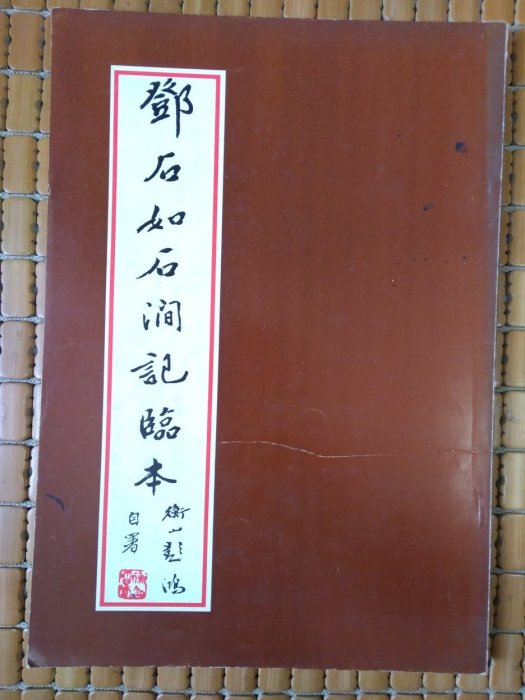 鄧石如石澗記臨本
衡山彭鴻
自署